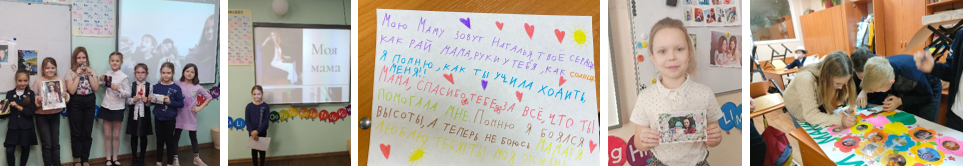 Моя
мама
Мою Маму зовут Наталья, твоё сердце
как рай мама, руки у тебя, как солнце
Я помню, как ты учила ходить,
меня!!
Мама, спасибо тебе за всё, что ты
помогала мне. Помню я боялся
высоты, а теперь не боюсь падать